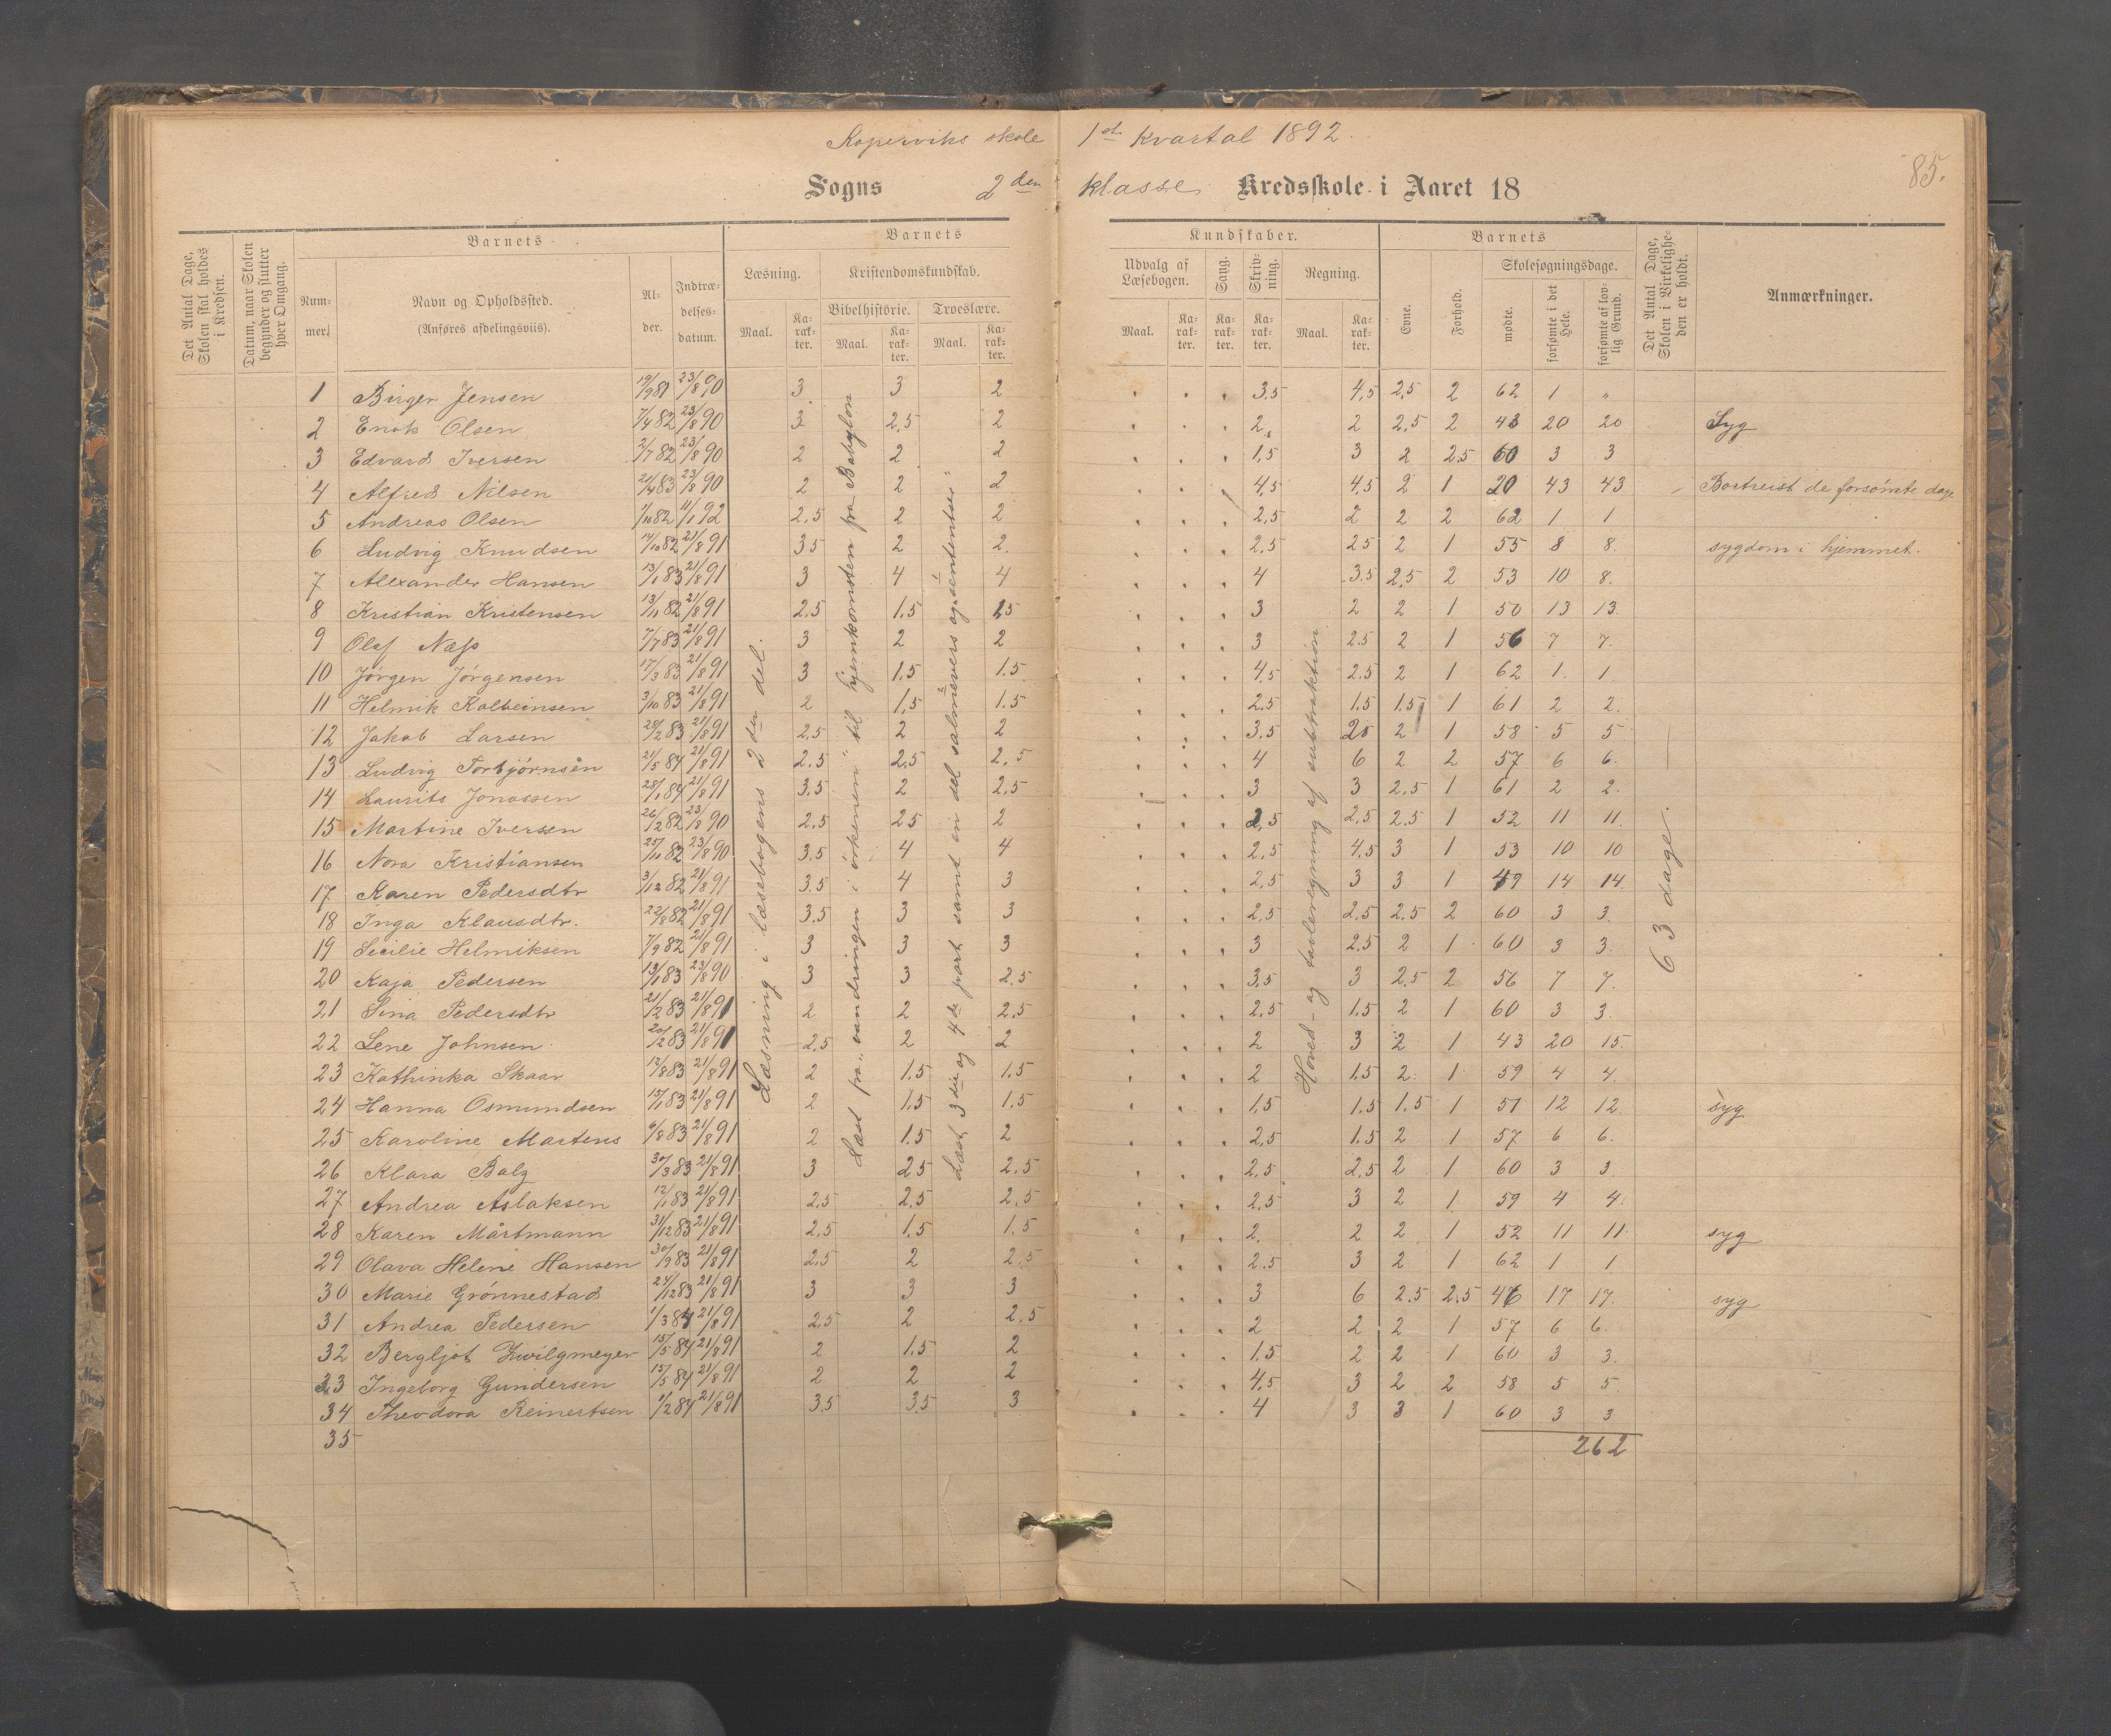 Koperviks skole 1st kvartal 1892.
85.
Sogns 2den klasse Kredsskole i Aaret 18
Det Antal Dage, Skolen skal holdes i Kredsen.
Datum, naar Skolen begynder og slutter hver Omgang.
Barnets
Nummer.
Navn og Opholdssted.
(Anføres afdelingsviis).
Alder.
Indtrædelsesdatum.
Barnets
Læsning.
Maal.
Karakter.
Kristendomskundskab.
Bibelhistorie.
Maal.
Karakter.
Troeslære.
Maal.
Karakter.
Kundskaber.
Udvalg af Læsebogen.
Maal.
Karakter.
Sang.
Karakter.
Skrivning.
Karakter.
Regning.
Maal.
Karakter.
Barnets
Evne.
Forhold.
Skolesøgningsdage.
mødte.
forsømte i det Hele.
forsømte af lovlig Grund.
Det Antal Dage, Skolen i Virkeligheden er holdt.
Anmærkninger.
1 Birger Jensen 19/9 81 23/8 90 3 3 2 3,5 4,5 2,5 2 62 1 "
2 Enok Olsen 7/4 82 23/8 90 3 2,5 2 2 2 2,5 2 43 20 20 Syg
3 Edvard Iversen 2/7 82 23/8 90 2 2 2 1,5 3 2 2,5 60 3 3
4 Alfred Nilsen 21/4 83 23/8 90 2 2 2 4,5 4,5 2 1 20 43 43 Bortreist de forsømte dage
5 Andreas Olsen 1/10 82 11/1 92 2,5 2 2 2,5 2 2 2 62 1 1
6 Ludvig Knudsen 14/10 82 21/8 91 35 2 2 2,5 25 2 1 55 8 8. sygdom i hjemmet.
7 Alexander Hansen 13/1 83 21/8 91 3 4 4 4 3.5 2,5 2 53 10 8.
8 Kristian Kristensen 13/11 82 21/8 91 2.5 1.5 25 3 2 2 1 50 13 13.
9 Olaf Næss 7/7 83 21/8 91 3 2 2 3 2.5 2 1 56 7 7.
10 Jørgen Jørgensen 17/3 83 21/8 91 3 1.5 1.5 4,5 2.5 2 1 62 1. 1.
11 Helmik Kolbeinsen 3/10 83 21/8 91 2 1,5 1.5 2.5 1.5 1.5 1 61 2 2.
12 Jakob Larsen 28/2 83 21/8 91 2,5 2 2 3,5 25 2 1 58 5 5
13 Ludvig Torbjørnsen 21/5 84 21/8 91 2.5 2,5 2,5 4 6 2 2 57 6 6.
14 Laurits Jonassen 28/1 84 21/8 91 3.5 2 2,5 3 3 2.5 1 61 2 2.
15 Martine Iversen 26/2 82 23/8 90 2,5 25 2 2,5 2,5 2.5 1 52 11 11.
16 Nora Kristiansen 25/10 82 23/8 90 3.5 4 4 2,5 4.5 3 1 53 10 10
17 Karen Pedersdtr 3/12 82 21/8 91 3.5 4 3 2,5 3 3 1 49 14 14.
18 Inga Klausdtr. 22/8 82 21/8 91 3.5 3 3 2,5 2,5 2,5 2 60 3 3.
19 Secilie Helmiksen 7/9 82 21/8 91 3 3 3 3 2,5 2 1. 60 3 3.
20 Kaja Pedersen 13/1 83 23/8 90 3 3 2.5 3,5 3 2,5 2 56 7 7.
21 Sina Pedersdtr 21/2 83 21/8 91 2 2 2,5 2,5 1.5 2 1 60 3 3.
22 Lene Johnsen 20/2 83 21/8 91 2,5 2 2 2 3 2 1 43 20 15.
23 Kathinka Skaar 12/8 83 21/8 91 2 1.5 1.5 2 1.5 2. 1. 59 4 4.
24 Hanna Osmundsen 15/1 83 21/8 91 2 1.5 1.5 1,5 1.5 1.5 1 51 12 12. syg
25 Karoline Martens 6/8 83 21/8 91 2 1.5 2 2,5 1.5 2 1 57 6 6.
26 Klara Balz 30/3 83 21/8 91 3 2.5 2.5 2.5 2.5 2 1 60 3 3
27 Andrea Aslaksen 12/1 83 21/8 91 2.5 2.5 2.5 2.5 3 2 1 59 4 4.
28 Karen Mårtmann 31/12 83 21/8 91 2,5 1.5 1,5 2. 2 2 1 52 11 11. syg
29 Olava Helene Hansen 30/9 83 21/8 91 2,5 2 2,5 2.5 3 2 1 62 1 1
30 Marie Grønnestad 24/12 83 21/8 91 3 3 3 3 6 2.5 2,5 46 17 17. syg
31 Andrea Pedersen 1/3 84 21/8 91 2,5 2 2.5 2 2 2 1 57 6 6.
32 Bergljot Zwilgmeyer 15/5 84 21/8 91 2 1.5 2 1.5 2 2 1 60 3 3.
33 Ingeborg Gundersen 15/5 84 21/8 91 2 2 2 4,5 3 2 2 58 5 5.
34 Theodora Reinertsen 1/2 84 21/8 91 3,5 3.5 3 4 3 3 1 60 3 3
35
262
Læsning i læsebogens 2den del.
Læst fra "vandringen i ørkenen" til hjemkomsten fra Babylon
Læst 3die og 4de part samt en del salmevers og sententser
Hoved- og tavleregning af subtraktion
63 dage.